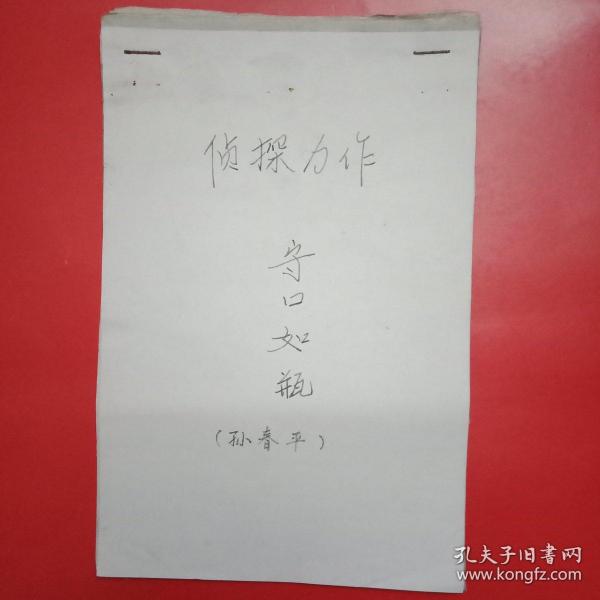 侦探力作
守口如瓶
(孙春平)
孔夫子旧書网
www.kongfz.com